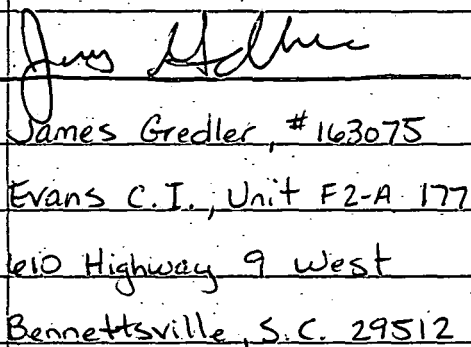 James Gredler, #163075
Evans C.I., Unit F2-A 177
610 Highway 9 West
Bennettsville, S.C. 29512